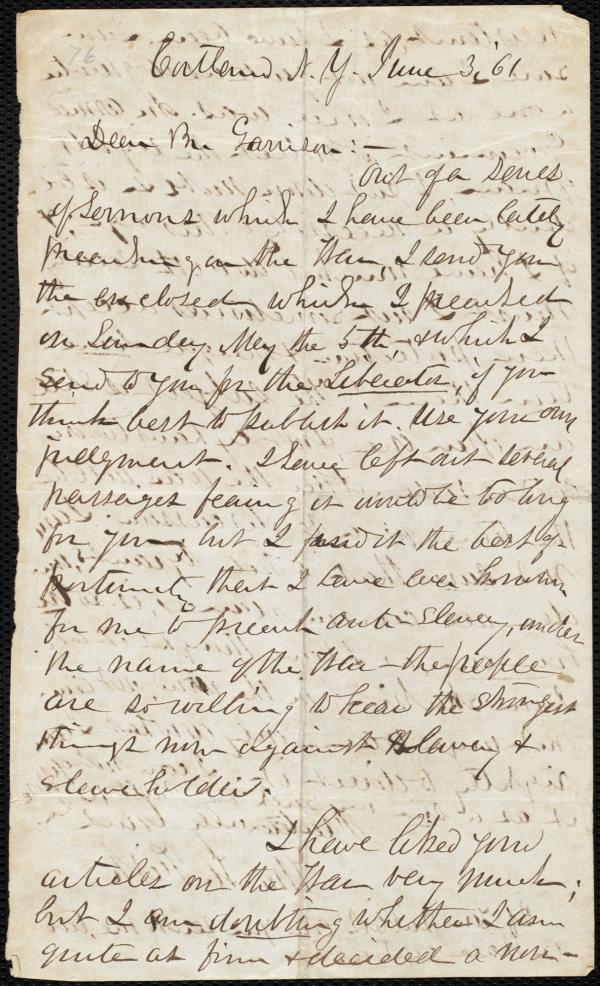 76
Cortland N. Y. June 3, '61
Dear Br. Garrison:—
Out of a series
of sermons which I have been lately
preaching on the War, I send you
the enclosed which I preached
on Sunday May the 5th, & which I
send to you for the Liberator, if you
think best to publish it. Use your own
judgment. I have left out several
passages fearing it would be too long
for you but I find it the best op-
portunity that I have ever known
for me to preach anti-slavery, under
the name of the War—the people
are so willing to hear the strongest
things now against Slavery &
slaveholders.
I have liked your
articles on the War very much;
but I am doubting whether I am
quite as firm & decided a non-